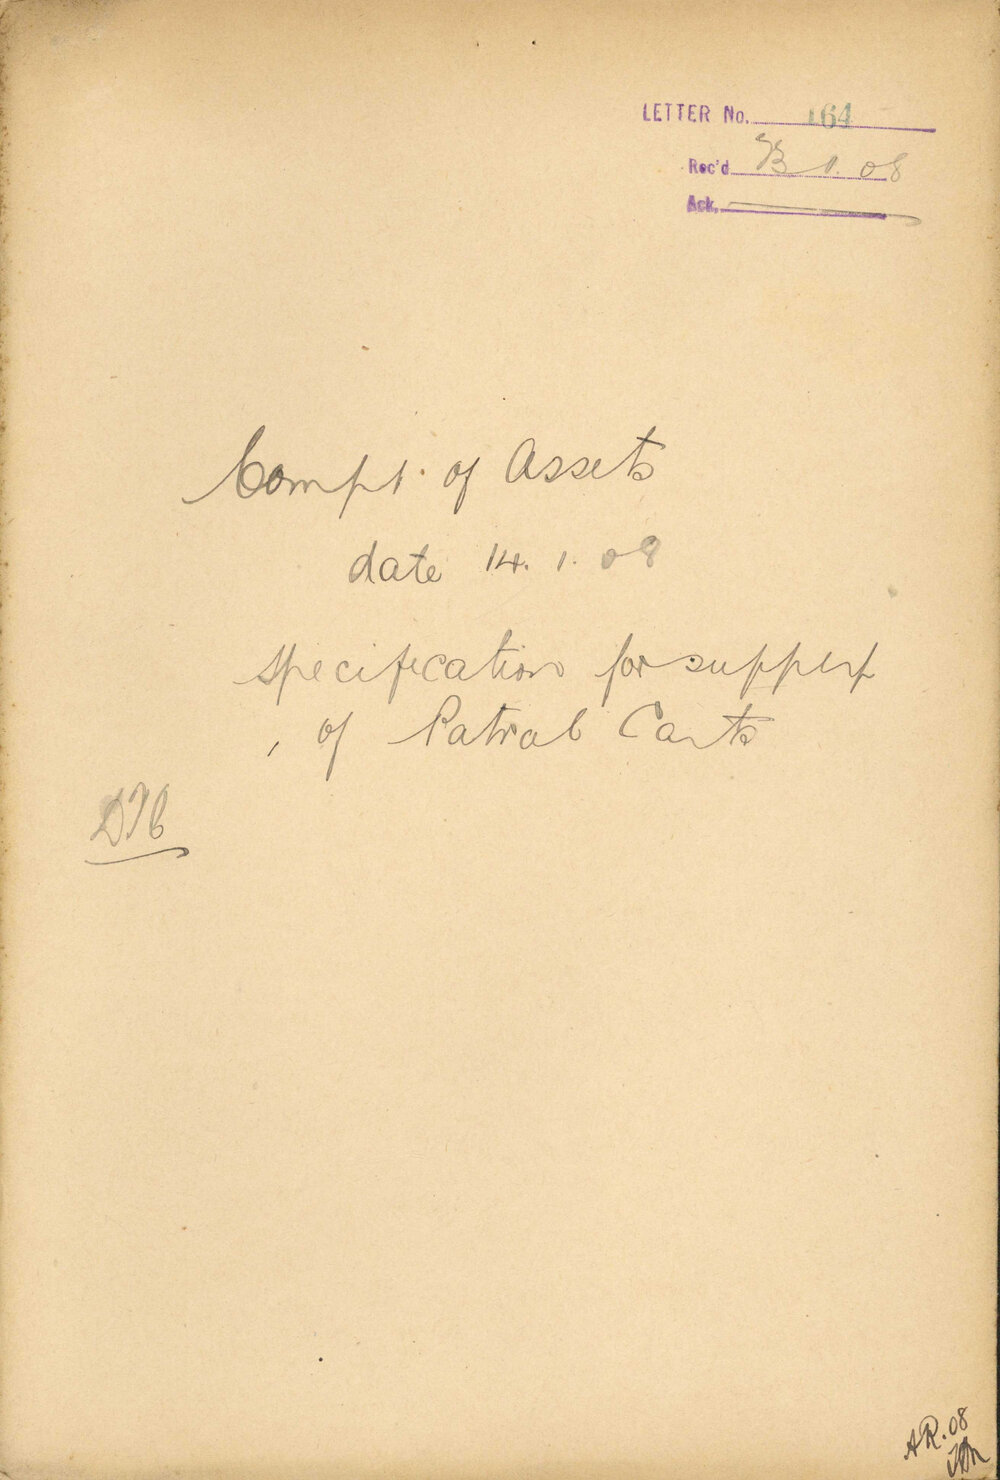 LETTER No. 164
Rec'd 1. 08
Ack.
Compt. of Assets
date 14. 1. 08
Specification for supply
of Patrol Carts
A R. 08